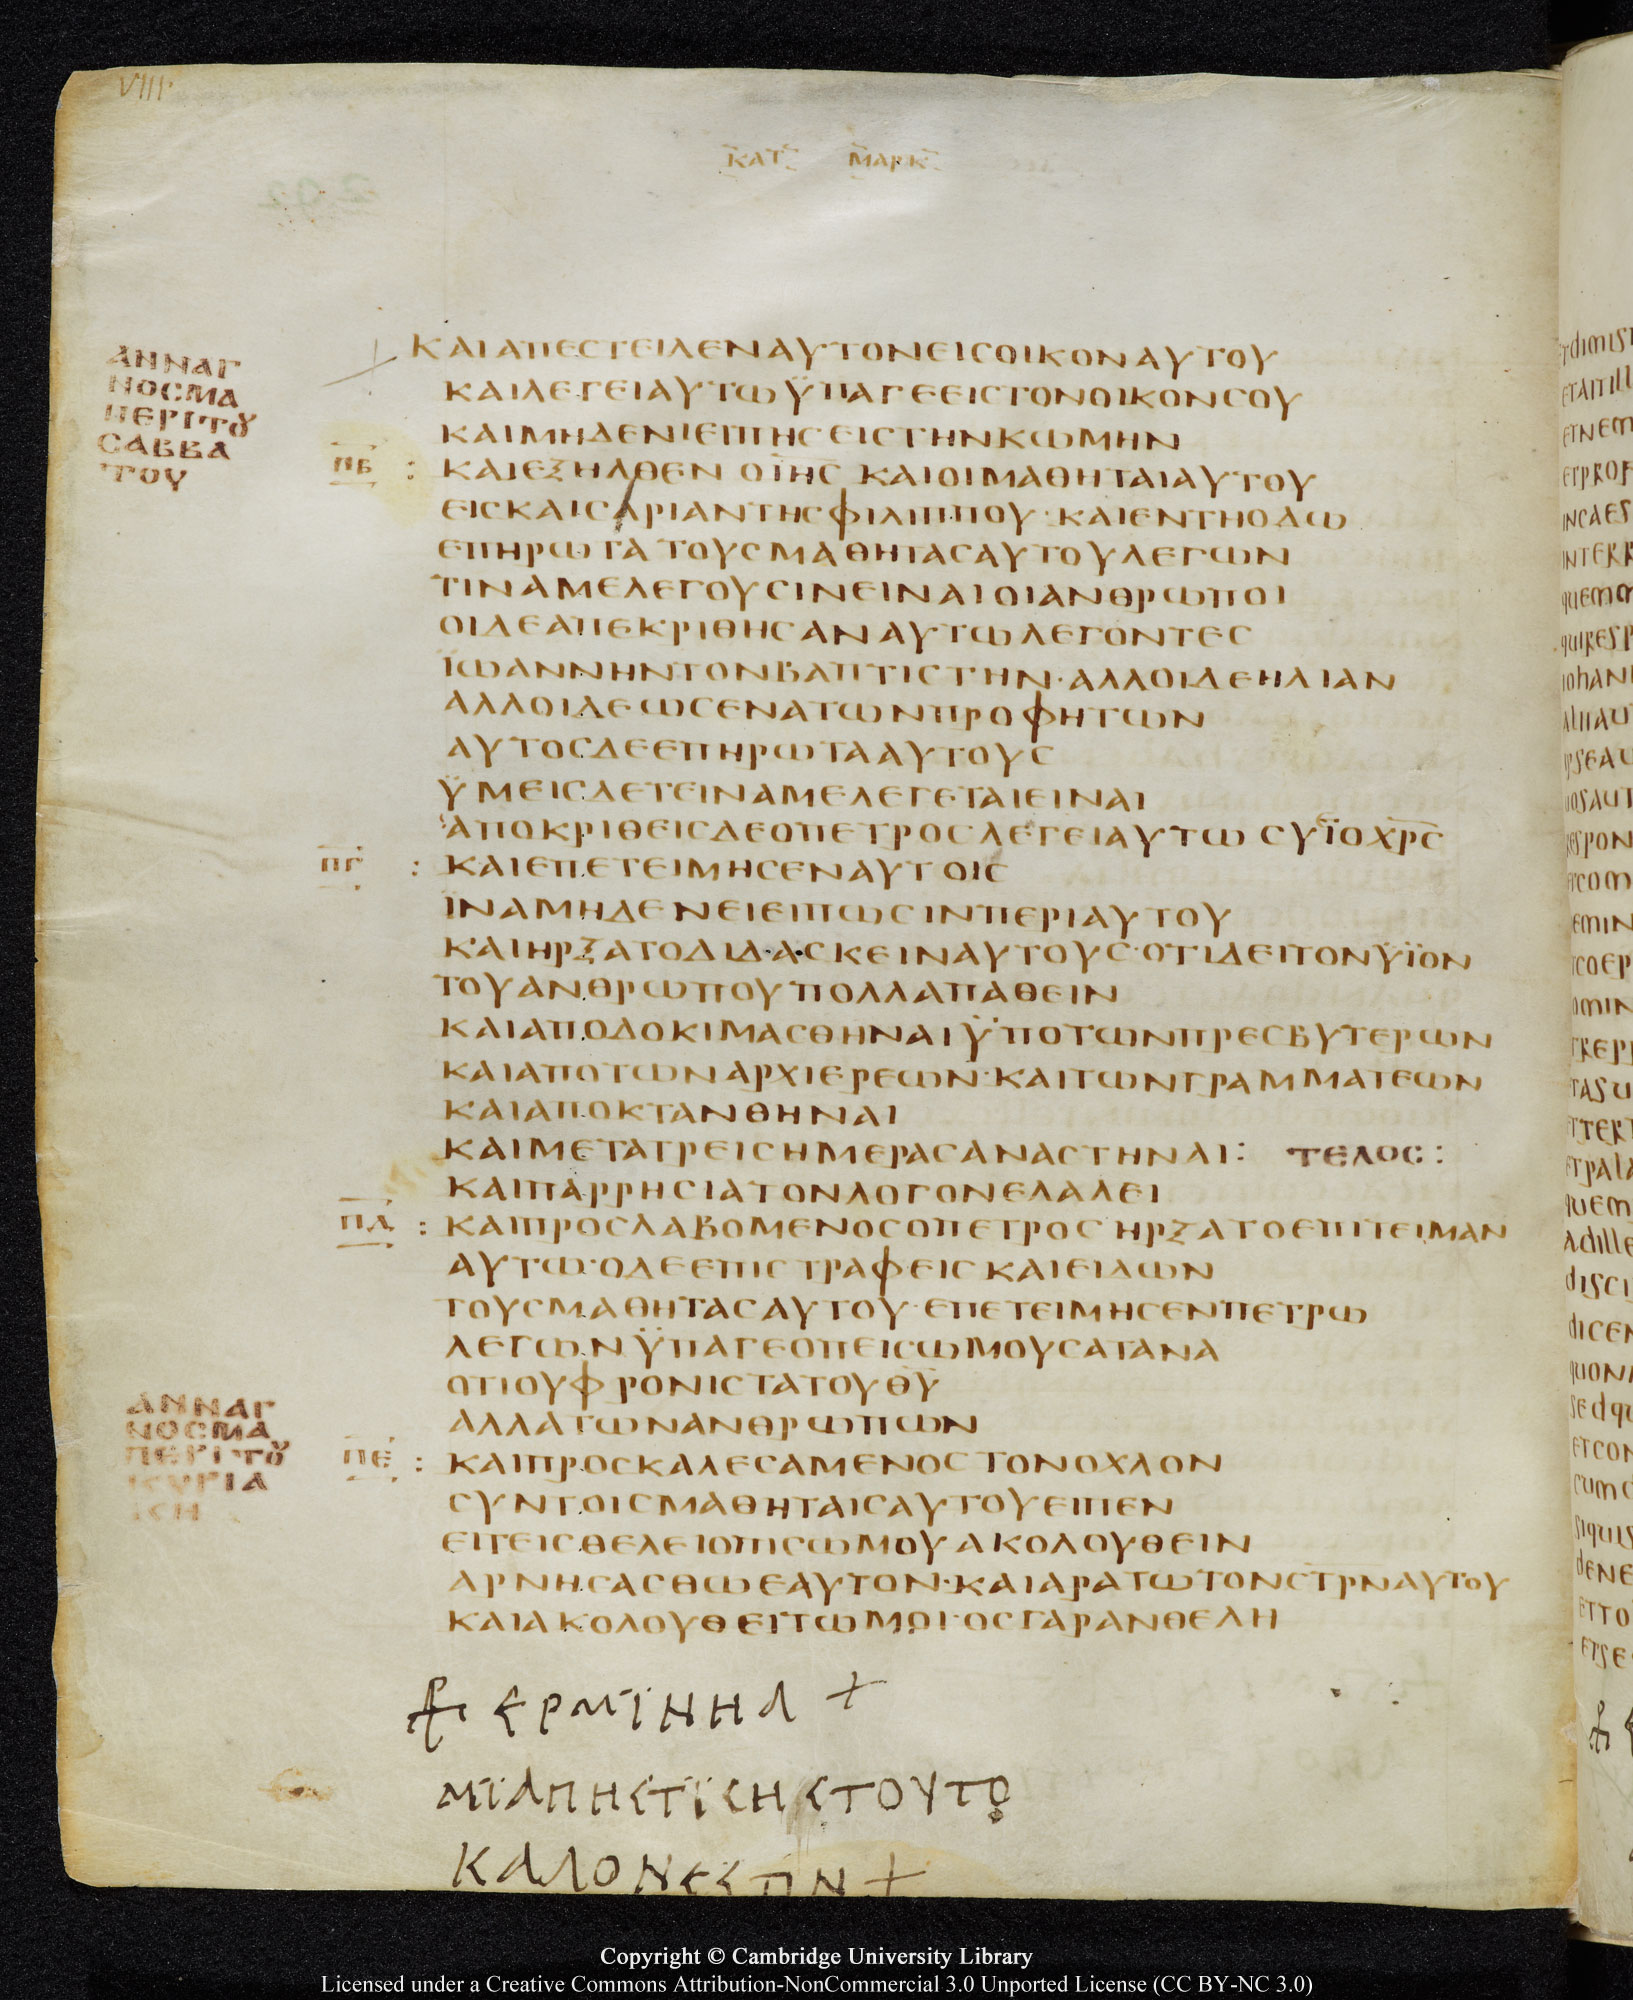 VIII
ΚΑΤ ΜΑΡΚ
ΑΝΝΑΓ
ΝΟΣΜΑ
ΠΕΡΙΤȢ
ΣΑΒΒΑ
ΤΟΥ
ΚΑΙΑΠΕΣΤΕΙΛΕΝΑΥΤΟΝΕΙΣΟΙΚΟΝΑΥΤΟΥ
ΚΑΙΛΕΓΕΙΑΥΤΩΫΠΑΓΕΕΙΣΤΟΝΟΙΚΟΝΣΟΥ
ΚΑΙΜΗΔΕΝΙΕΙΠΗΣΕΙΣΤΗΝΚΩΜΗΝ
ΠΒ : ΚΑΙΕΞΗΛΘΕΝ ΟΙΗΣ ΚΑΙΟΙΜΑΘΗΤΑΙΑΥΤΟΥ
ΕΙΣΚΑΙΣΑΡΙΑΝΤΗΣΦΙΛΙΠΠΟΥ·ΚΑΙΕΝΤΗΟΔΩ
ΕΠΗΡΩΤΑΤΟΥΣΜΑΘΗΤΑΣΑΥΤΟΥΛΕΓΩΝ
ΤΙΝΑΜΕΛΕΓΟΥΣΙΝΕΙΝΑΙΟΙΑΝΘΡΩΠΟΙ
ΟΙΔΕΑΠΕΚΡΙΘΗΣΑΝΑΥΤΩΛΕΓΟΝΤΕΣ
ΪΩΑΝΝΗΝΤΟΝΒΑΠΤΙΣΤΗΝ·ΑΛΛΟΙΔΕΗΛΙΑΝ
ΑΛΛΟΙΔΕΩΣΕΝΑΤΩΝΠΡΟΦΗΤΩΝ
ΑΥΤΟΣΔΕΕΠΗΡΩΤΑΑΥΤΟΥΣ
ΫΜΕΙΣΔΕΤΕΙΝΑΜΕΛΕΓΕΤΑΙΕΙΝΑΙ
ΑΠΟΚΡΙΘΕΙΣΔΕΟΠΕΤΡΟΣΛΕΓΕΙΑΥΤΩ ΣΥΪΟΧΡΣ
ΠΓ : ΚΑΙΕΠΕΤΕΙΜΗΣΕΝΑΥΤΟΙΣ
ΪΝΑΜΗΔΕΝΕΙΕΙΠΩΣΙΝΠΕΡΙΑΥΤΟΥ
ΚΑΙΗΡΞΑΤΟΔΙΔΑΣΚΕΙΝΑΥΤΟΥΣ·ΟΤΙΔΕΙΤΟΝΫΪΟΝ
ΤΟΥΑΝΘΡΩΠΟΥΠΟΛΛΑΠΑΘΕΙΝ
ΚΑΙΑΠΟΔΟΚΙΜΑΣΘΗΝΑΙΫΠΟΤΩΝΠΡΕΣΒΥΤΕΡΩΝ
ΚΑΙΑΠΟΤΩΝΑΡΧΙΕΡΕΩΝ·ΚΑΙΤΩΝΓΡΑΜΜΑΤΕΩΝ
ΚΑΙΑΠΟΚΤΑΝΘΗΝΑΙ
ΚΑΙΜΕΤΑΤΡΕΙΣΗΜΕΡΑΣΑΝΑΣΤΗΝΑΙ: ΤΕΛΟΣ:
ΚΑΙΠΑΡΡΗΣΙΑΤΟΝΛΟΓΟΝΕΛΑΛΕΙ
ΠΔ : ΚΑΙΠΡΟΣΛΑΒΟΜΕΝΟΣΟΠΕΤΡΟΣ ΗΡΞΑΤΟΕΠΙΤΕΙΜΑΝ
ΑΥΤΩ·ΟΔΕΕΠΙΣΤΡΑΦΕΙΣΚΑΙΕΙΔΩΝ
ΤΟΥΣΜΑΘΗΤΑΣΑΥΤΟΥ·ΕΠΕΤΕΙΜΗΣΕΝΠΕΤΡΩ
ΛΕΓΩΝ ΫΠΑΓΕΟΠΕΙΣΩΜΟΥΣΑΤΑΝΑ
ΟΤΙΟΥΦΡΟΝΙΣΤΑΤΟΥΘΥ
ΑΛΛΑΤΩΝΑΝΘΡΩΠΩΝ
ΑΝΝΑΓ
ΝΟΣΜΑ
ΠΕΡΙΤȢ
ΚΥΡΙΑ
ΙΚΗ
ΠΕ : ΚΑΙΠΡΟΣΚΑΛΕΣΑΜΕΝΟΣΤΟΝΟΧΛΟΝ
ΣΥΝΤΟΙΣΜΑΘΗΤΑΙΣΑΥΤΟΥΕΙΠΕΝ
ΕΙΤΕΙΣΘΕΛΕΙΟΠΙΣΩΜΟΥΑΚΟΛΟΥΘΕΙΝ
ΑΡΝΗΣΑΣΘΩΕΑΥΤΟΝ·ΚΑΙΑΡΑΤΩΤΟΝΣΤΡΝΑΥΤΟΥ
ΚΑΙΑΚΟΛΟΥΘΕΙΤΩΜΟΙ·ΟΣΓΑΡΑΝΘΕΛΗ
ΕΡΜΪΝΗΑ +
ΜΪΑΠΗΣΤΪΣΗΣΤΟΥΤΟ
ΚΑΛΟΝΕΣΤΙΝ +
Copyright © Cambridge University Library
Licensed under a Creative Commons Attribution-NonCommercial 3.0 Unported License (CC BY-NC 3.0)